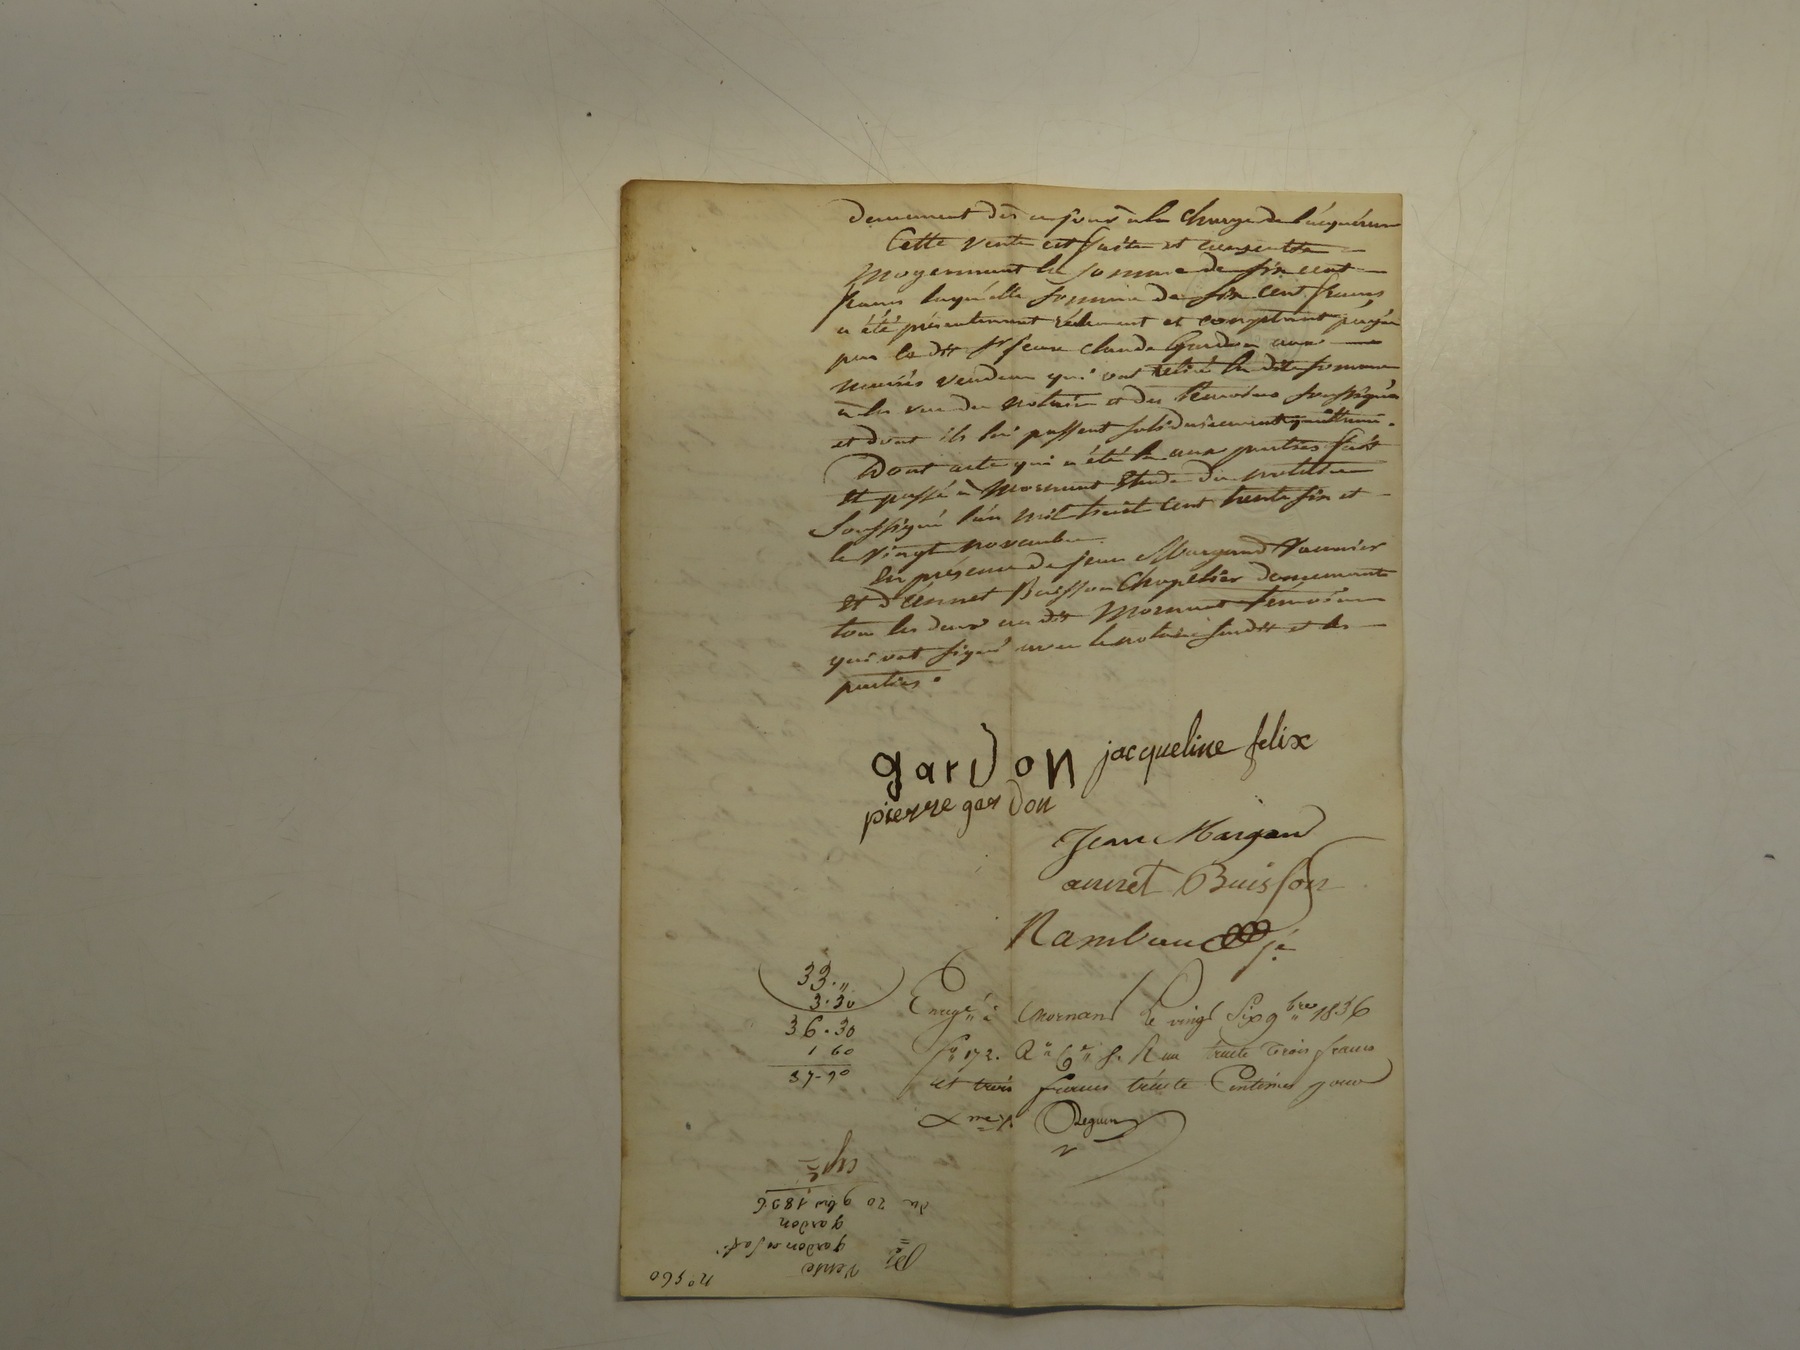 dès ce jour à la charge de l'acquéreur
Cette vente est faite et consentie
moyennant la somme de six cent
francs laquelle somme de six cent francs
a été présentement réelement et comptant payée
par le dit Sr jean claude Gardon aux
mariés vendeurs qui ont retiré la dite somme
à la vue du notaire et des témoins soussignés
et dont ils lui passent solidairement quittance.
Dont acte qui a été lu aux parties fait
et passé à Mornant Etude du notaire
soussigné l'an mil huit cent trente six et
le vingt novembre.
En présence de jean Margand
et d'Annet Buisson Chapelier demeurants
tous les deux au dit Mornant témoins
qui ont signé avec le notaire susdit et les
parties.
garDon jacqueline felix
pierre garDon
Jean Margand
annet Buisson
Rambaud
33.,,
3.30
36.30
1 60
37-90
Enregré à Mornant le vingt six 9bre 1836
fo 172. Ro Reçu trente trois francs
et trois francs trente Centimes pour
Xme /.
du 20 9bre 1836
gardon
gardon
Vente
no 560